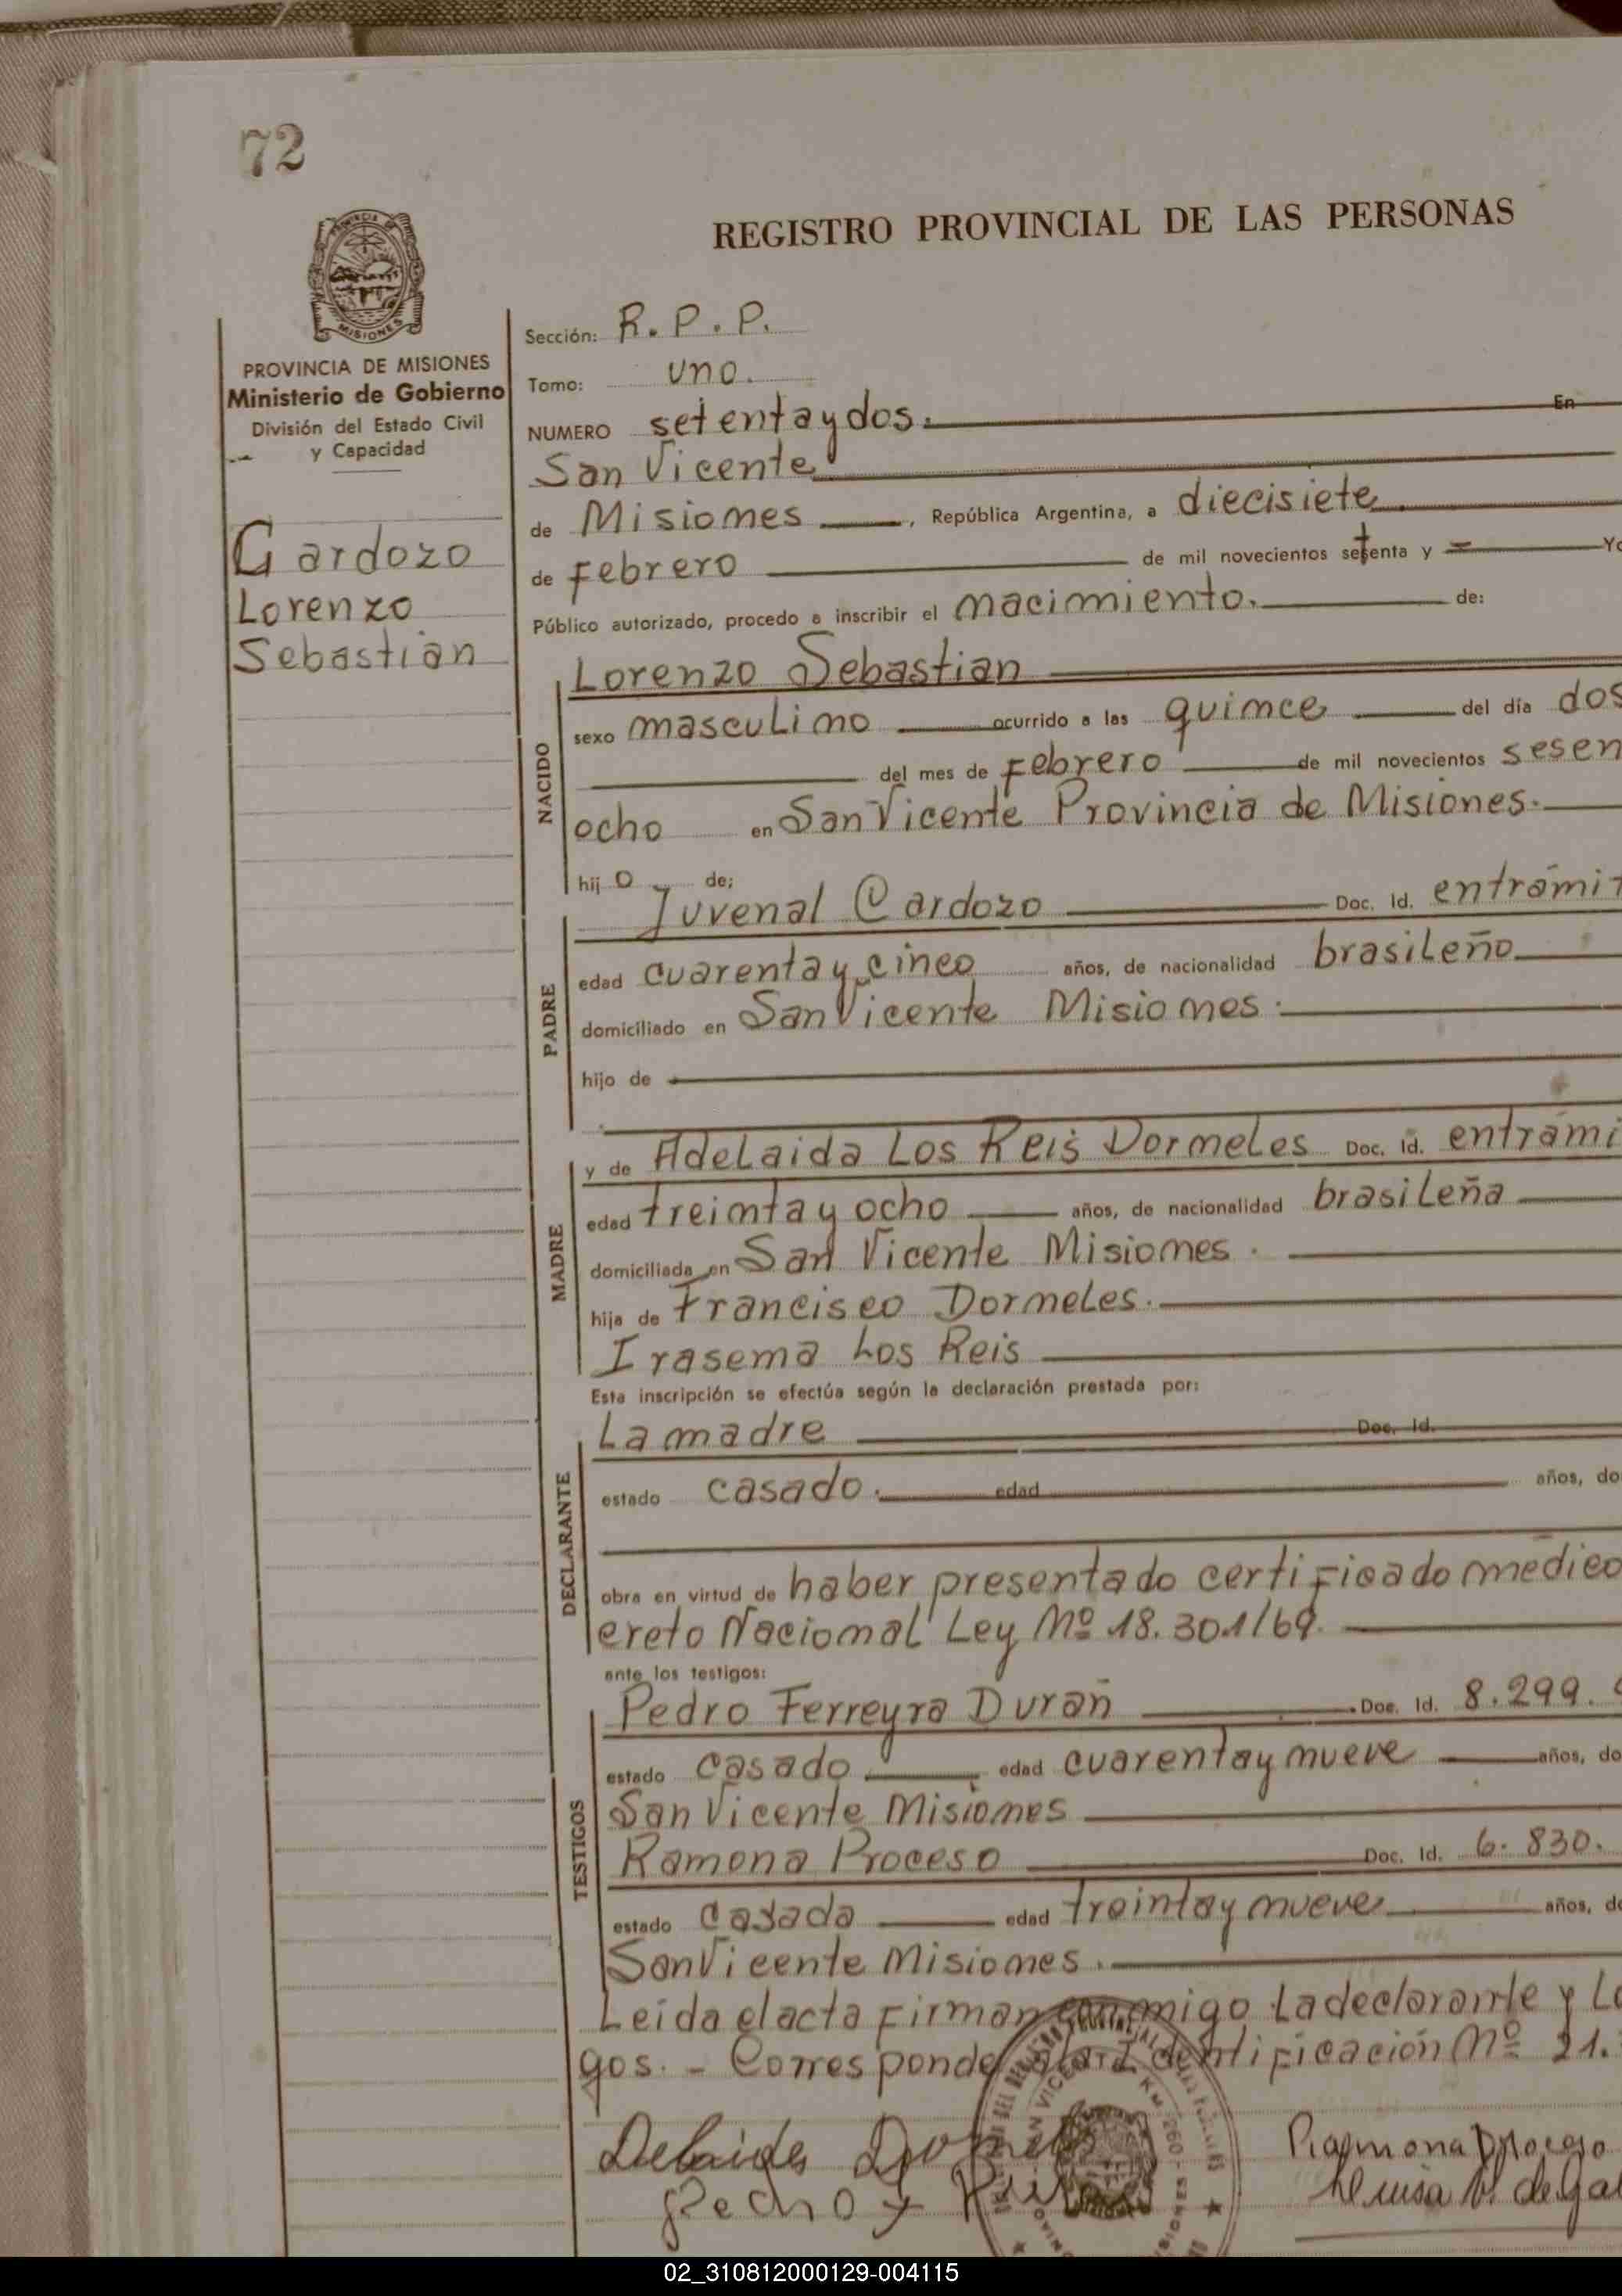 72
REGISTRO PROVINCIAL DE LAS PERSONAS
MISIONES
PROVINCIA DE MISIONES
Ministerio de Gobierno
División del Estado Civil
y Capacidad
Cardozo
Lorenzo
Sebastián
Sección: R.P.P.
Tomo: uno.
NUMERO setenta y dos. En
San Vicente
de Misiones, República Argentina, a diecisiete
de Febrero de mil novecientos setenta y Yo
Público autorizado, procedo a inscribir el nacimiento. de:
NACIDO
Lorenzo Sebastian
sexo masculino ocurrido a las quince del día dos
del mes de Febrero de mil novecientos sesen
ocho en San Vicente Provincia de Misiones.
hijo de:
PADRE
Juvenal Cardozo Doc. Id. entrámit
edad cuarenta y cinco años, de nacionalidad brasileño
domiciliado en San Vicente Misiones.
hijo de
MADRE
y de Adelaida Los Reis Dormeles Doc. Id. entrámi
edad treinta y ocho años, de nacionalidad brasileña
domiciliada en San Vicente Misiones.
hija de Francisco Dormeles.
Irasema Los Reis
Esta inscripción se efectúa según la declaración prestada por:
DECLARANTE
La madre Doc. Id.
estado casado. edad años, do
obra en virtud de haber presentado certificado médico
ereto Nacional Ley Nº 18.301/69.
ante los testigos:
TESTIGOS
Pedro Ferreyra Durañ Doc. Id. 8.299.
estado casado edad cuarenta y nueve años, do
San Vicente Misiones
Ramona Proceso Doc. Id. 6.830.
estado casada edad treinta y nueve años, do
San Vicente Misiones.
Leída el acta Firman conmigo La declarante y Lo
gos. - Corresponde Identificación Nº 21.
Ramona Proceso
02_310812000129-004115